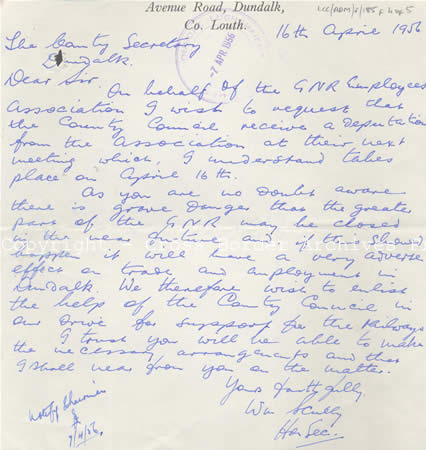 Avenue Road, Dundalk,
Co. Louth.
LCC/ADM/5/185 F 4 of 5
16th April 1956
7 APR 1956
The County Secretary
Dundalk.
Dear Sir.
On behalf of the GNR Employees
Association I wish to request that
the County Council receive a Deputation
from the Association at their next
meeting which, I understand takes
place on April 16th.
As you are no doubt aware
there is grave danger that the greater
part of the GNR may be closed
in the near future if this should
happen it will have a very adverse
effect on trade and employment in
Dundalk. We therefore wish to enlist
the help of the County Council in
our drive for support for the Railways
I trust you will be able to make
the necessary arrangements and that
I shall hear from you on the matter.
Yours faithfully
Wm Scully
Hon Sec.
Notify Chairman
7/4/56
Copyright Cross Border Archives